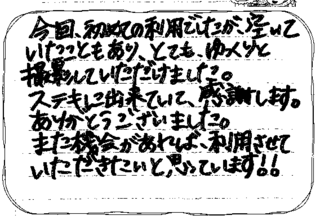 今回、初めての利用でしたが、空いて
いたこともあり、とても、ゆっくりと
撮影していただけました。
ステキに出来ていて、感謝します。
ありがとうございました。
また機会があれば、利用させて
いただきたいと思っています!!